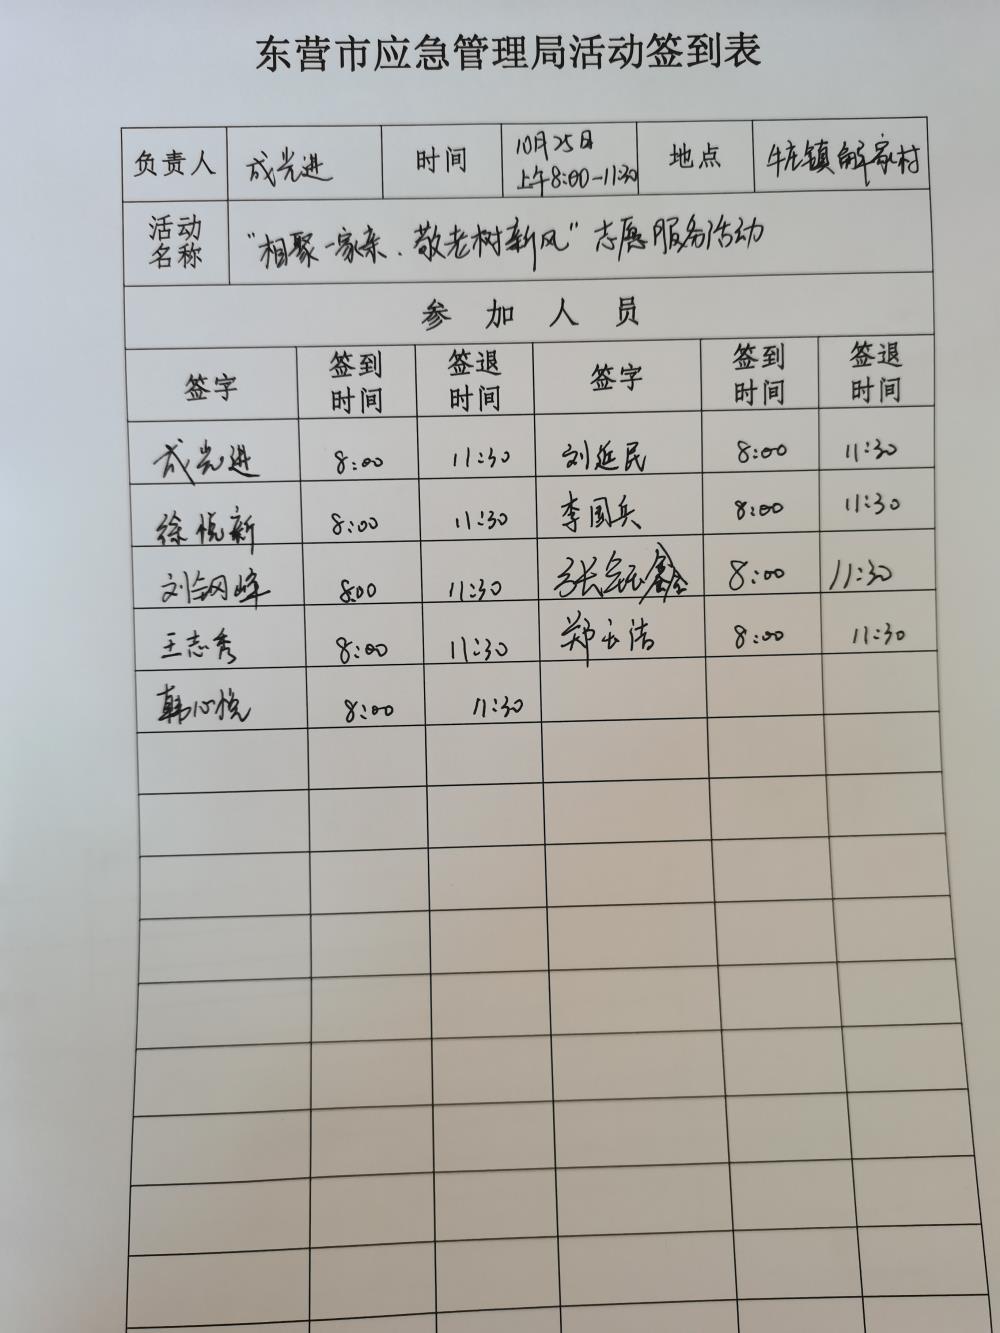 东营市应急管理局活动签到表
负责人 成光进 时间 10月25日 上午8:00-11:30 地点 牛庄镇解家村
活动名称 "相聚一家亲、敬老树新风"志愿服务活动
参加人员
签字 签到时间 签退时间 签字 签到时间 签退时间
成光进 8:00 11:30 刘延民 8:00 11:30
徐悦新 8:00 11:30 李国兵 8:00 11:30
刘钢峰 8:00 11:30 张鑫 8:00 11:30
王志秀 8:00 11:30 郑玉洁 8:00 11:30
韩心悦 8:00 11:30